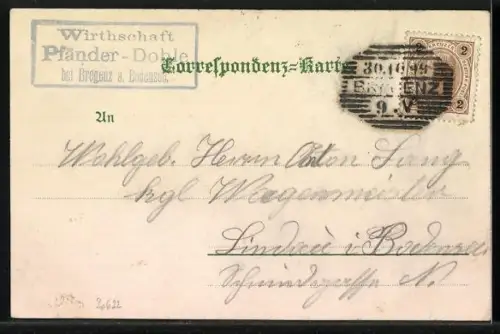 Wirthschaft
Pfänder-Dohle
bei Bregenz a. Bodensee.
Correspondenz-Karte
2 2
30.10.99
BREGENZ
9.V
2
An
Wohlgeb. Herrn Anton Lang
kgl Wagenmeister
Lindau i Bodensee
Schmiedgasse N.